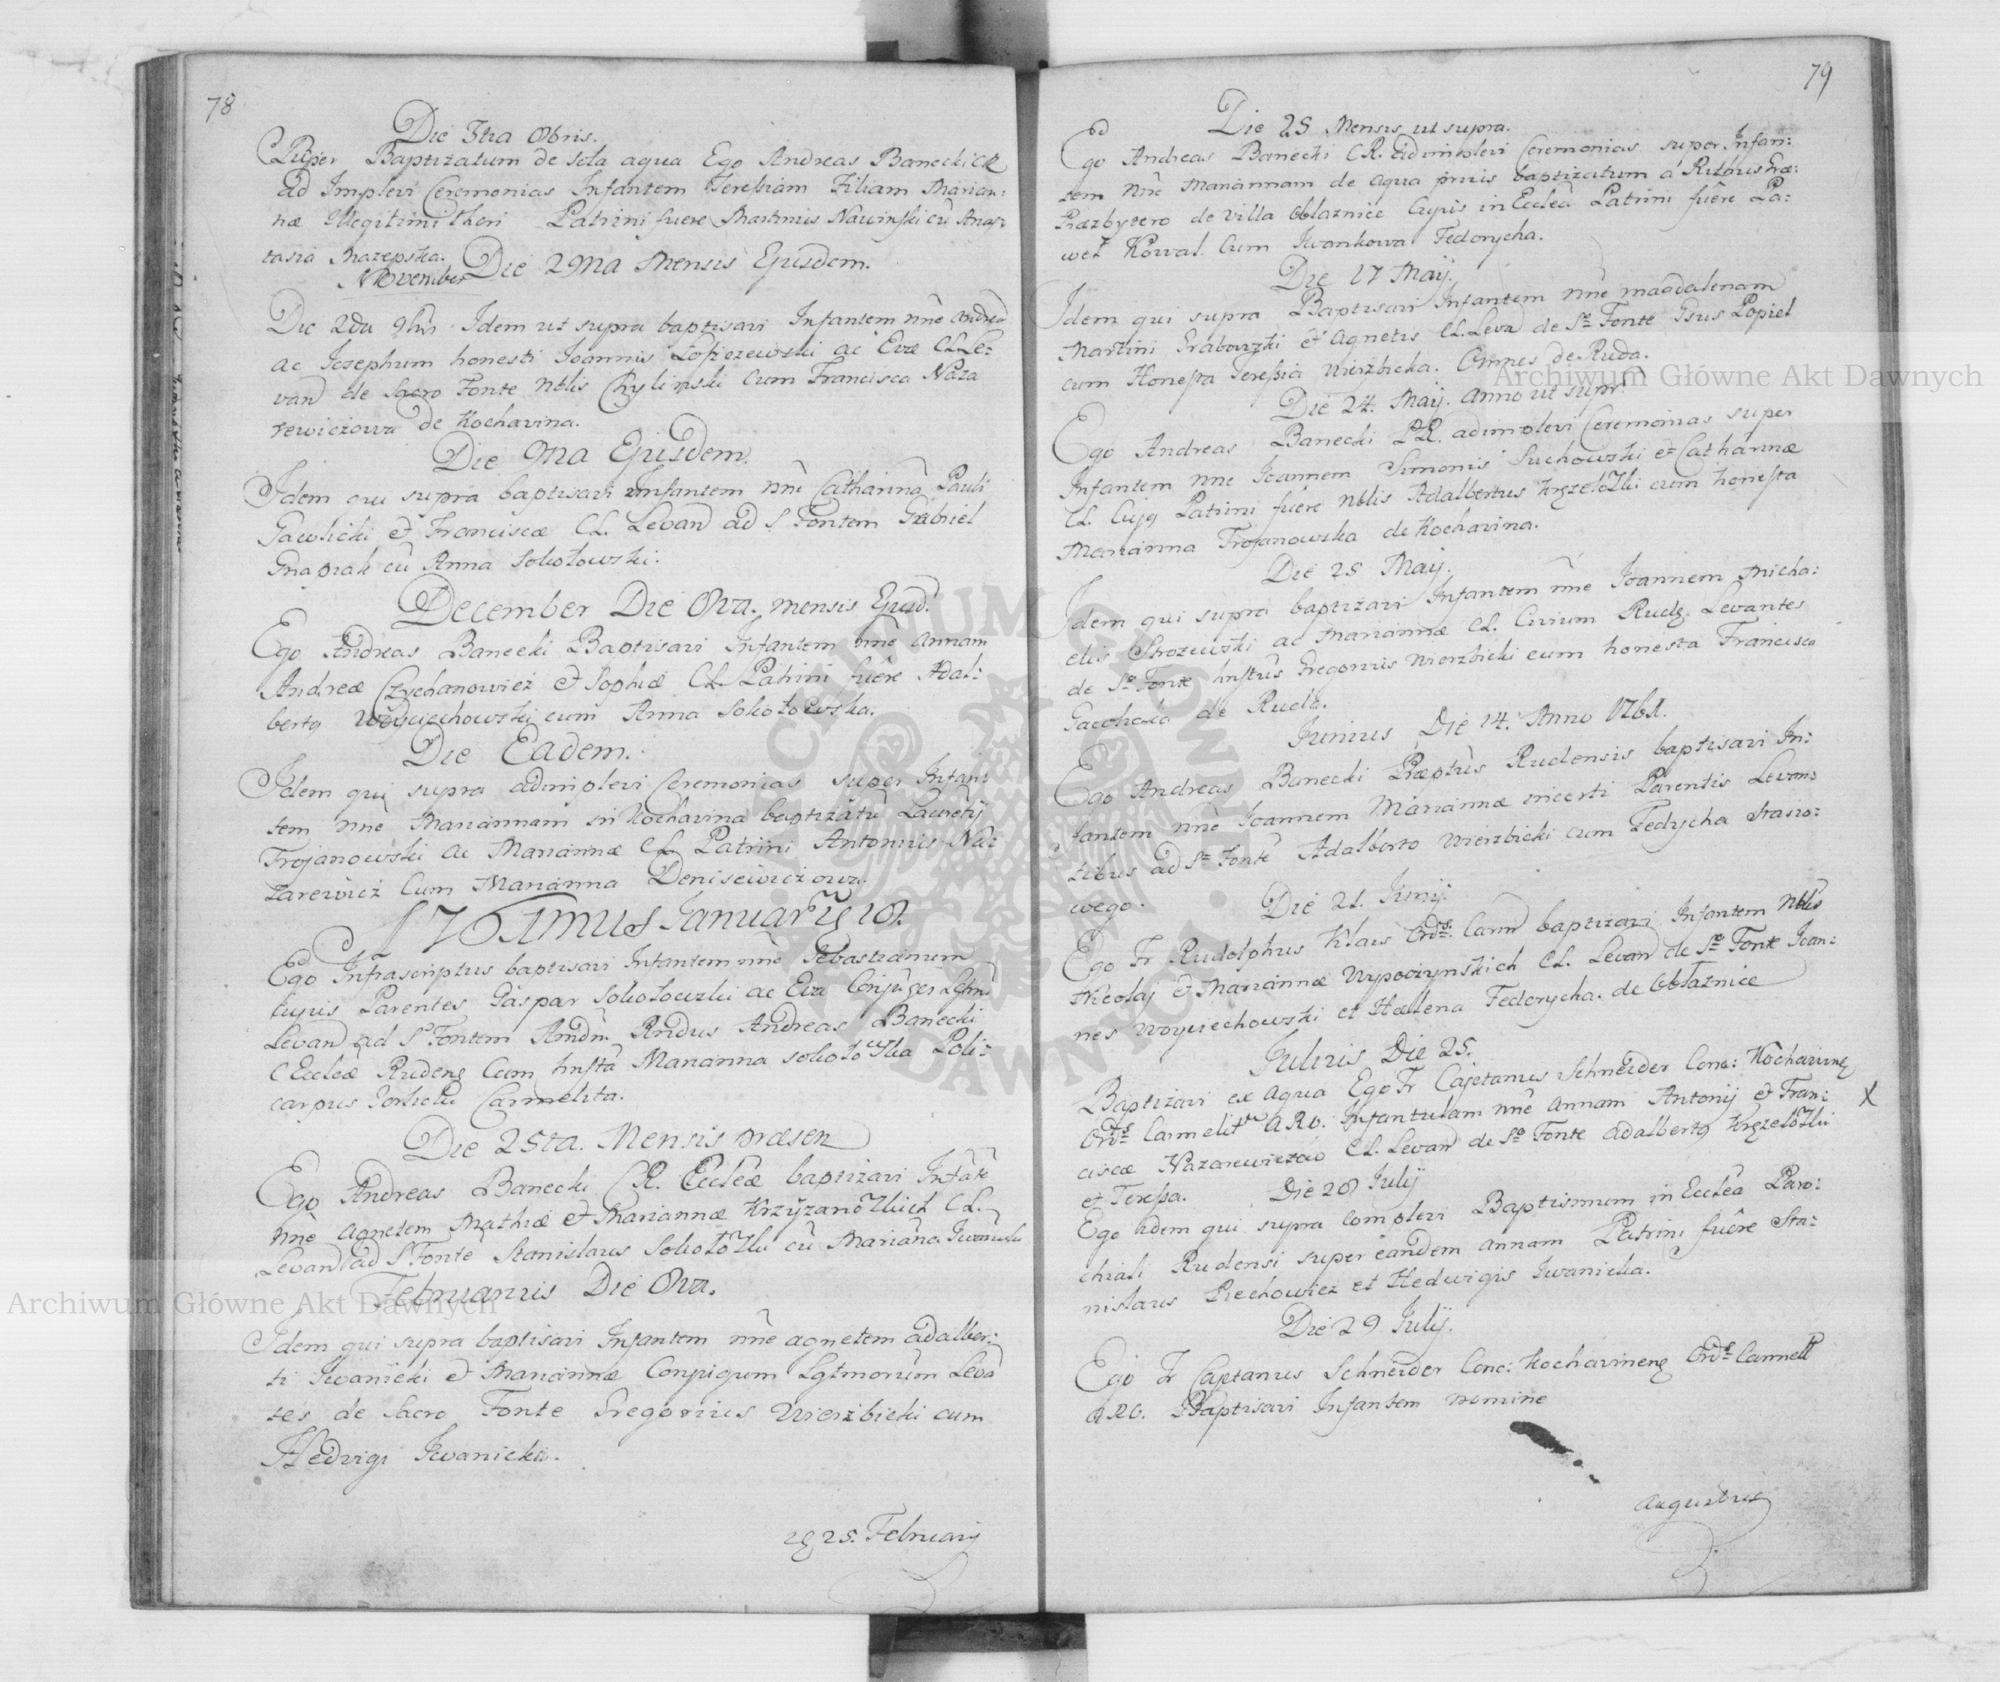 78
Die 3tia 8bris.
Super Baptizatum de sola aqua Ego Andreas Banecki CR
ad Implevi Ceremonias Infantem Teressiam Filiam Marian:
næ Illegitimi thori Patrini fuere Martinus Nawinski cũ Anas:
tasia Mazepska.
Die 29na Mensis Ejusdem.
November
Die 2da 9bris Idem ut supra baptisavi Infantem nñe Andrea
ac Josephum honesti Joannis ac Evæ CL Le:
vand de Sacro Fonte Nblis Chylinski cum Francisca Naza
rewiczowa de Kochavina.
Die 9na Ejusdem.
Idem qui supra baptisavi Infantem nñe Catharinã Pauli
Gawlicki et Franciscæ CL. Levand ad S Fontem Gabriel
Gnapiak cũ Anna Sokołowski.
December Die 8va. mensis Ejusd.
Ego Andreas Banecki Baptisavi Infantem nñe Annam
Andreæ Czychanowicz et Sophiæ CL Patrini fuêre Adal:
bertq Woyciechowski cum Anna Sokołowska.
Die Eadem.
Idem qui supra adimplevi Ceremonias super Infan
tem nñe Mariannam in Kochavina baptizatũ Laurētij
Trojanowski ac Mariannæ CL Patrini Antonius Na:
zarewicz Cum Marianna Denisewiczowa.
176 1mus Januarij 18.
Ego Infrascriptus baptisavi Infantem nñe Sebastianum
Cujus Parentes Gaspar Sokołowski ac Eva Conjuges Lgtmi
Levand ad S Fontem Andreas Banecki
C Eccleæ Rudeng Cum hnsta Marianna Sokołowska Poli:
carpus Carmelita.
Die 25ta. Mensis præsen
Ego Andreas Banecki CR. Eccleæ baptizavi Infãtẽ
nñe Agnetem Mathiæ et Mariannæ Krzyżanowskich CL.
Levand ad S Fonte Stanislaus Sokołowski cũ Mariana Iwanicka
Februarius Die 8va.
Idem qui supra baptisavi Infantem nñe Agnetem Adalber:
ti Iwanicki et Mariannæ Conjugum Lgtmorum Levã
tes de Sacro Fonte Gregorius Wierzbicki cum
Hedvigi Iwanicka.
25. Februarij
79
Die 25 Mensis ut supra.
Ego Andreas Banecki CR. Adimplevi Ceremonias super Infan:
tem nñe Mariannam de aqua prius baptizatum á
Præzbytero de villa Obłaznice Cujus in Ecclea Patrini fuêre Pa:
weł Kowal. Cum Iwankowa Fedorycha.
Die 17 Maij.
Idem qui supra Baptisavi Infantem nñe Magdalenam
Martini Grabowski et Agnetis CL. Levand de So Fonte Gsus Popiel
cum Honesta Teressia Wierzbicka. Omnes de Ruda.
Die 24. Maij. Anno ut supr
Ego Andreas Banecki CR. adimplevi Ceremonias super
Infantem nñe Joannem Simonis Suchowski et Catharinæ
CL. Cujq Patrini fuêre Nblis Adalbertus cum honesta
Marianna Trojanowska de Kochavina.
Die 25 Maij.
Idem qui supra baptizavi Infantem nñe Joannem Micha:
elis Strozewski ac Mariannæ CL. Civium Rudg. Levantes
de So Fonte hnstus Gregorius Wierzbicki cum honesta Francisca
Gawlicka de Ruda.
Junius Die 14. Anno 1761.
Ego Andreas Banecki Præptus Rudensis baptisavi In:
fantem nñe Joannem Mariannæ incerti Parentis Levan
tibus ad S Fontẽ Adalberto Wierzbicki cum Fedycha Stasio:
wego.
Die 21. Junij.
Ego Fr Rudolphus Klaus Ords. Carm baptizavi Infantem Nblis
Nicolaj et Mariannæ Wypoczynskich CL. Levand de So Fonte Joan:
nes Woyciechowski et Hælena Fedorycha. de Obłaznice
Julius Die 25.
Baptizavi ex Aqua Ego Fr Cajetanus Schneider Conc: Kochavineg
Ords Carmelit A.R.O. Infantulam nñe Annam Antonij et Fran: X
ciscæ Nazarewiczów CL. Levand de So Fonte Adalbertq
et Teressa.
Die 28 July
Ego idem qui supra complevi Baptismum in Ecclea Paro:
chiali Rudensi super eandem Annam Patrini fuêre Sta:
nislaus Piechowicz et Hedwigis Iwanicka.
Die 29 July.
Ego Fr Cajetanus Schneider Conc: Kochavineng Ords Carmelit
A.R.O. Baptisavi Infantem nomine
Augustus
Archiwum Główne Akt Dawnych
Archiwum Główne Akt Dawnych
ARCHIWUM GŁÓWNE AKT DAWNYCH